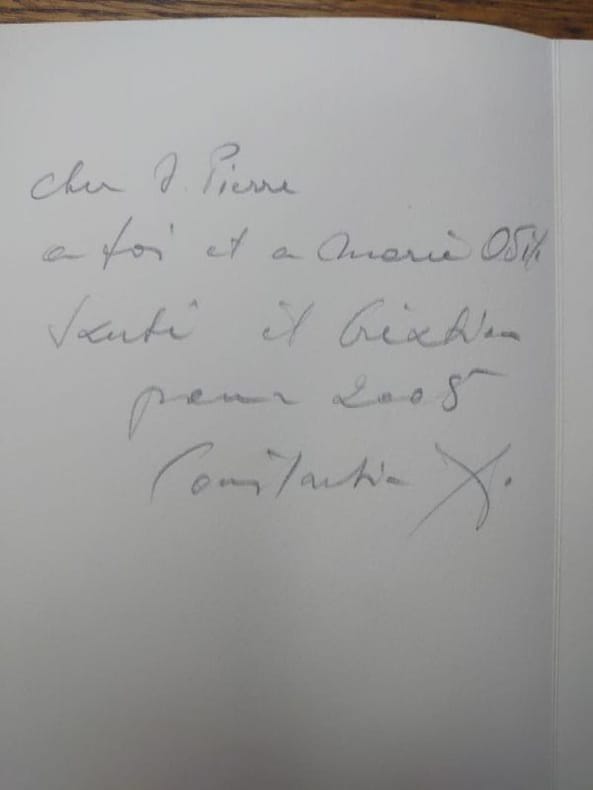 cher J. Pierre
a toi et a Marie Odile
Santé et Création
pour 2005
Constantin X.